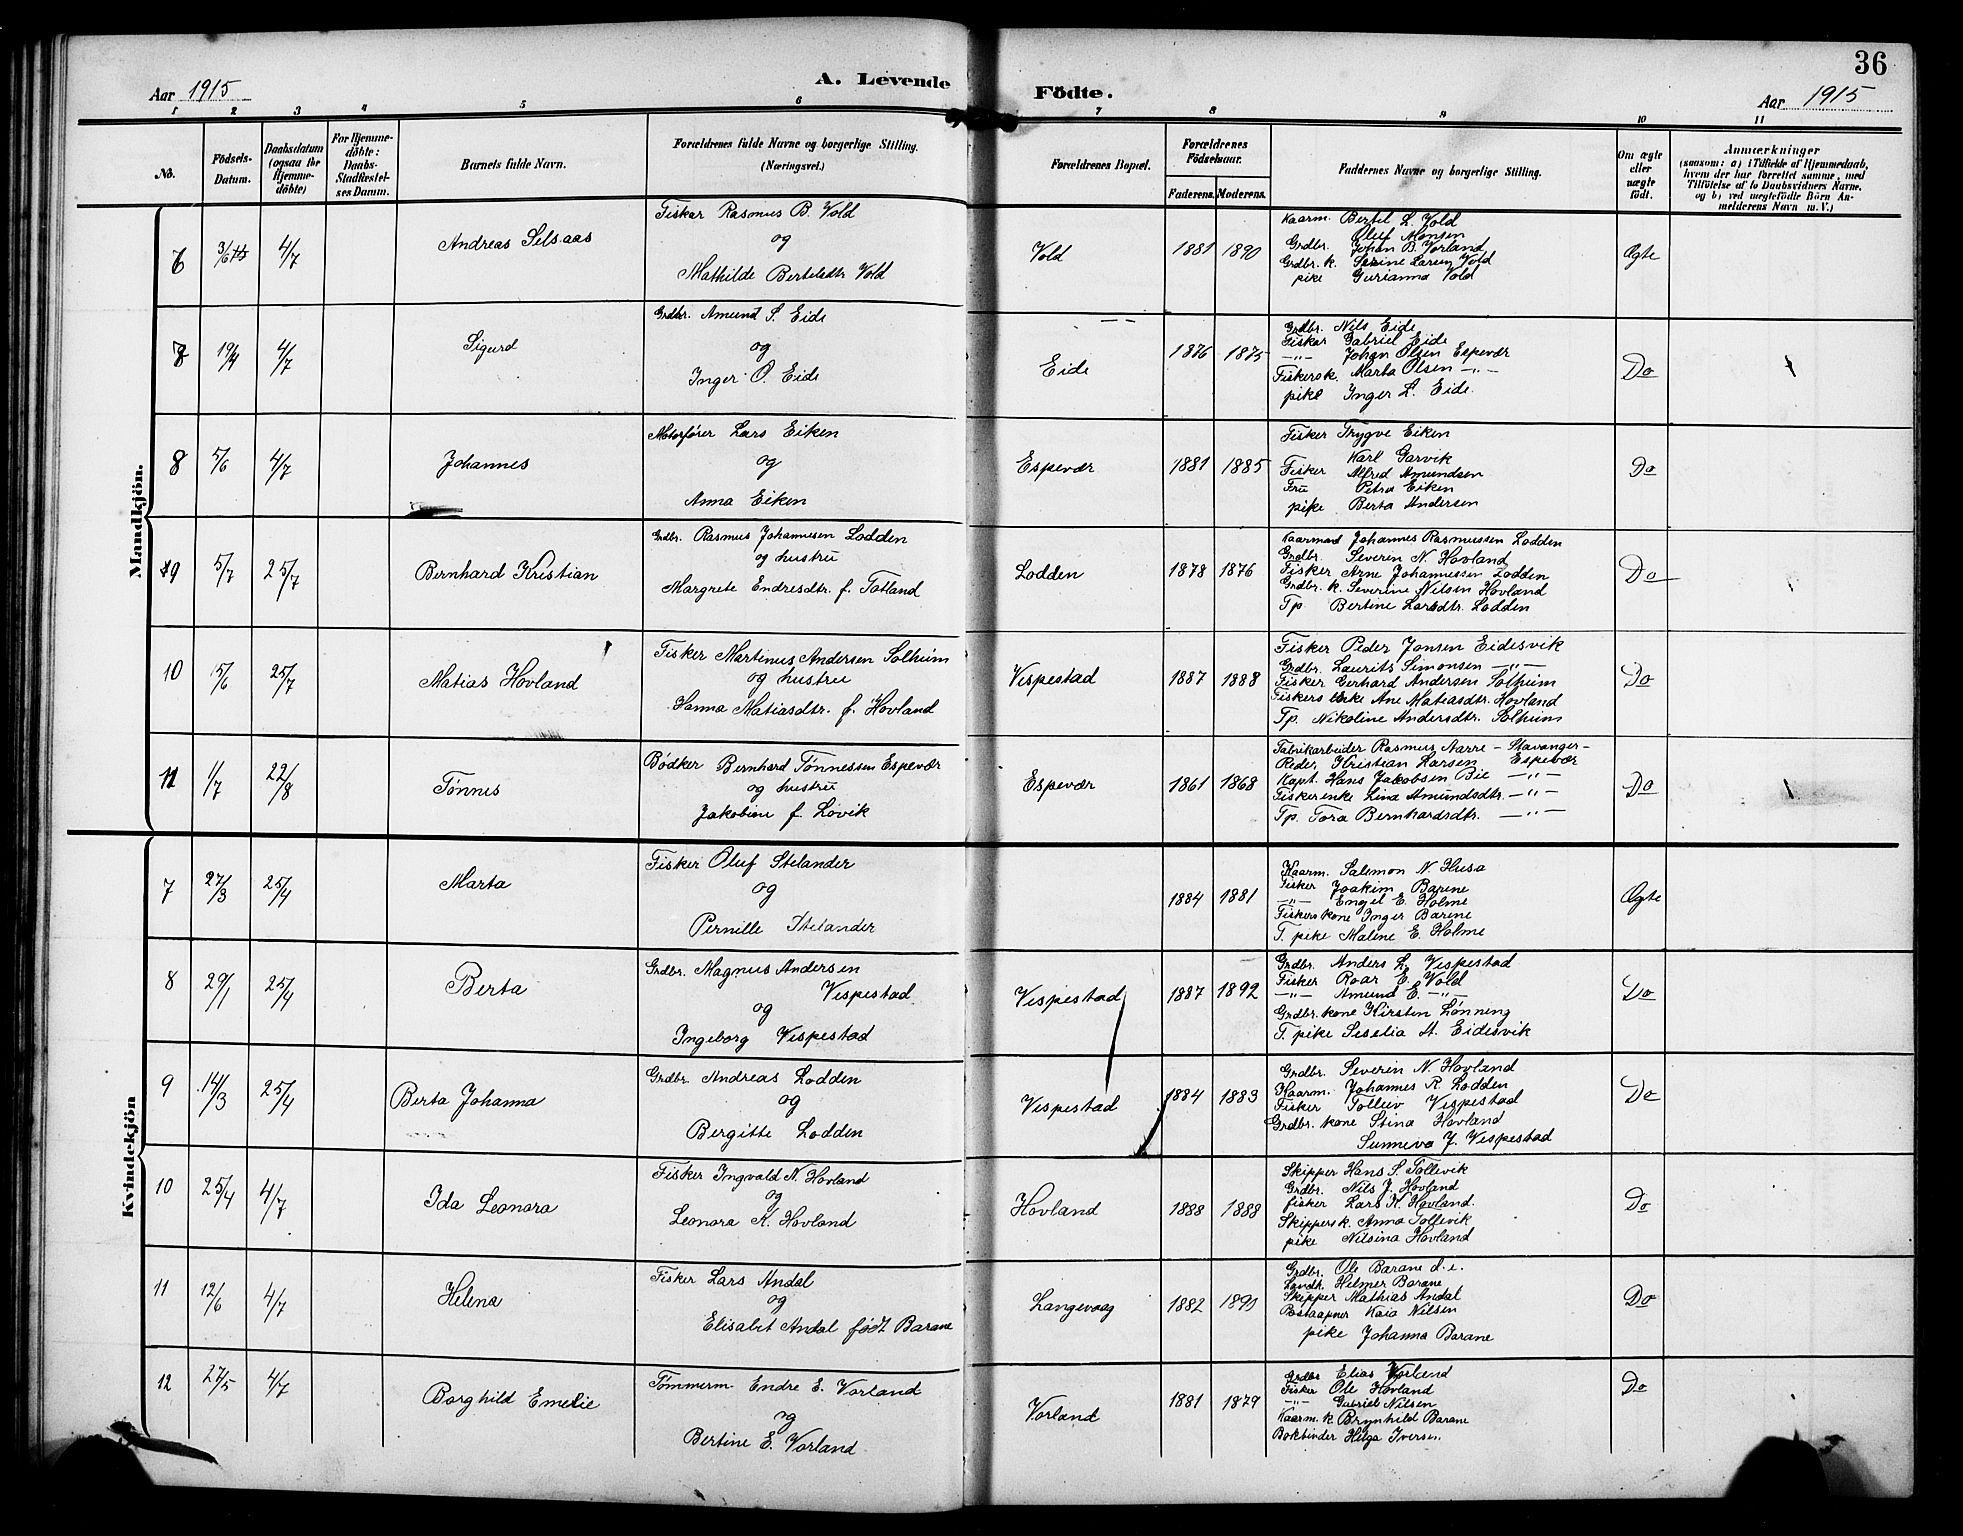 36
Aar 1915
A. Levende
Födte.
Aar 1915
1 2 3 4 5 6 7 8 9 10 11
No.
Födsels-Datum.
Daabsdatum (ogsaa for Hjemme-döbte)
For Hjemme-döbte: Daabs-Stadfæstel-ses Datum.
Barnets fulde Navn.
Forældrenes fulde Navne og borgerlige Stilling. (Næringsvei.)
Forældrenes Bopæl.
Forældrenes Födselsaar.
Faderens. Moderens.
Faddernes Navne og borgerlige Stilling.
Om ægte eller uægte födt.
Anmærkninger
(saasom: a) i Tilfælde af Hjemmedaab, hvem der har forrettet samme, med Tilföielse af to Daabsvidners Navne, og b) ved uægtefödte Börn An-melderens Navn m. V.)
Mandkjön.
6 3/6 4/7 Andreas Selsaas
Fisker Rasmus B. Vold
og
Mathilde Berteldtr Vold
Vold 1881 1890
Kaarm. Bertel L. Vold
Oluf Monsen
Grdbr. Johan B. Vorland
Grdbr. k. Serine Larsen Vold
pike Gurianna Vold
Ægte
4/7 Sigurd
Grdbr. Amund S. Eide
og
Inger O. Eide
Eide 1876 1875
Grdbr. Nils Eide
Fisker Gabriel Eide
—"— Johan Olsen Espevær
Fiskersk. Marta Olsen —"—
pike Inger L. Eide.
Do
8 5/6 4/7 Johannes
Motorfører Lars Eiken
og
Anna Eiken
Espevær 1881 1885
Fisker Trygve Eiken
Karl Garvik
Fisker Alfred Amundsen
Fru Petra Eiken
pike Berta Andersen
Do
9 5/7 25/7 Bernhard Kristian
Grdbr. Rasmus Johannesen Lodden
og hustru
Margrete Endresdtr. f. Totland
Lodden 1878 1876
Kaarmand Johannes Rasmussen Lodden
Grdbr. Severin N. Hovland
Fisker Arne Johannessen Lodden
Grdbr. k. Severine Nilsen Hovland
Tp. Bertine Larsdtr. Lodden
Do
10 15/6 25/7 Matias Hovland
Fisker Martinus Andersen Solheim
og hustru
Hanna Matiasdtr. f. Hovland
Vespestad 1887 1888
Fisker Peder Jonsen Eidesvik
Grdbr. Laurits Simonsen —"—
Fisker Gerhard Andersen Solheim
Fiskers enke Ane Matiasdtr. Hovland
Tp. Nikoline Andersdtr. Solheim
Do
11 1/7 22/8 Tønnes
Bødker Bernhard Tønnessen Espevær
og hustru
Jakobine f. Lovik
Espevær 1861 1868
Fabrikarbeider Rasmus Aarre – Stavanger –
Reder Kristian Larsen Espevær
Kapt. Hans Jakobsen Bie —"—
Fiskerenke Lina Amundsdtr. —"—
Tp. Tora Bernhardsdtr. —"—
Do
Kvindekjön
7 27/3 25/4 Marta
Fisker Oluf Stelander
og
Pernille Stelander
1884 1881
Kaarm. Salemon N. Husa
Fisker Joakim Barene
—"— Engel E. Holme
Fiskerskone Inger Barene
T. pike Malene E. Holme
Ægte
8 29/1 25/4 Berta
Grdbr. Magnus Andersen
Vespestad
og
Ingeborg Vespestad
Vespestad 1887 1892
Grdbr. Anders L. Vespestad
Fisker Roar E. Vold
—"— Amund E. —"—
Grdbr. kone Kirsten Lønning
T. pike Seselia A. Eidesvik
Do
9 14/3 25/4 Berta Johanna
Grdbr. Andreas Lodden
og
Bergitte Lodden
Vespestad 1884 1883
Grdbr. Severin N. Hovland
Kaarm. Johannes R. Lodden
Fisker Tolleiv Vespestad
Grdbr. kone Stina Hovland
Sunneva J. Vespestad
Do
10 25/4 4/7 Ida Leonora
Fisker Ingvald N. Hovland
og
Leonora K. Hovland
Hovland 1888 1888
Skipper Hans S. Tollevik
Grdbr. Nils J. Hovland
fisker Lars K. Hovland.
Skippersk. Anna Tollevik
pike Nilsina Hovland
Do
11 12/6 4/7 Helena
Fisker Lars Andal
og
Elisabet Andal født Barane
Langevaag 1882 1890
Grdbr. Ole Barane d. e.
Landh. Helmer Barane
Skipper Mathias Andal
Postaapner Kaia Nilsen
pike Johanna Barane
Do
12 27/5 4/7 Borghild Emelie
Tømmerm Endre E. Vorland
og
Bertine E. Vorland
Vorland 1881 1879
Grdbr Elias Vorland
Fisker Ole Hovland
—"— Gabriel Nilsen
Kaarm. k. Brynhild Barane
Bokbinder Helga Iversen
Do